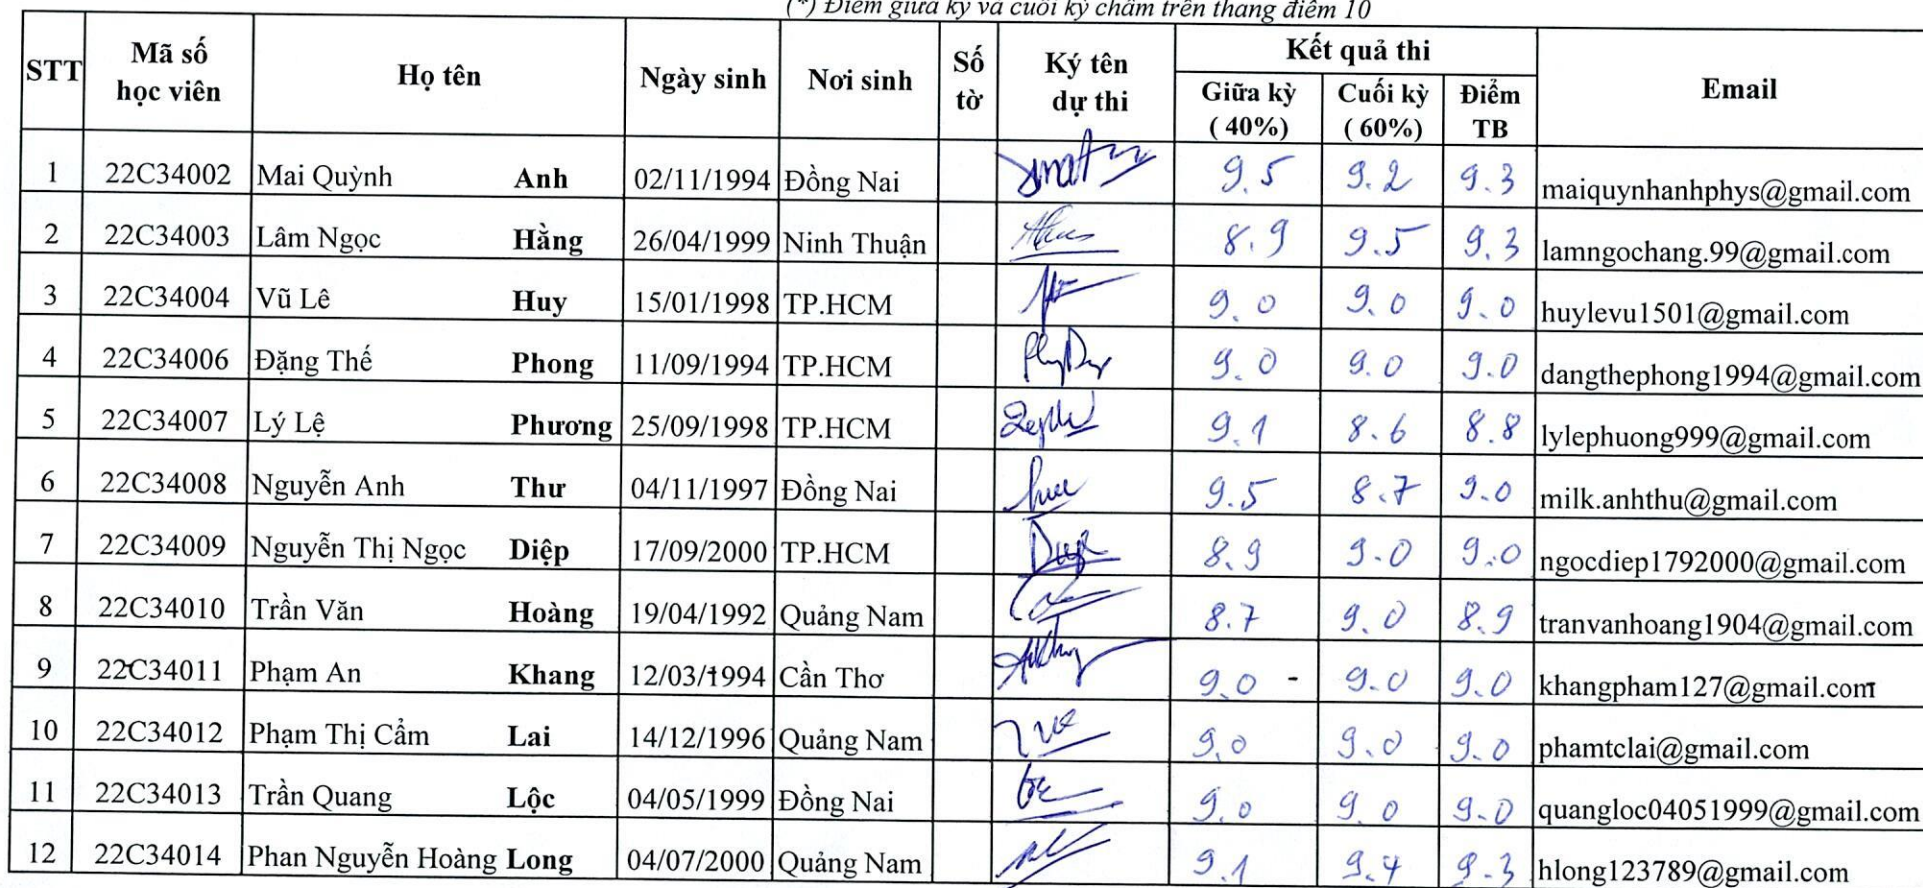 (*) Điểm giữa kỳ và cuối kỳ chấm trên thang điểm 10
STT Mã số học viên Họ tên Ngày sinh Nơi sinh Số tờ Ký tên dự thi Kết quả thi Email
Giữa kỳ (40%) Cuối kỳ (60%) Điểm TB
1 22C34002 Mai Quỳnh Anh 02/11/1994 Đồng Nai 9.5 9.2 9.3 maiquynhanhphys@gmail.com
2 22C34003 Lâm Ngọc Hằng 26/04/1999 Ninh Thuận 8.9 9.5 9.3 lamngochang.99@gmail.com
3 22C34004 Vũ Lê Huy 15/01/1998 TP.HCM 9.0 9.0 9.0 huylevu1501@gmail.com
4 22C34006 Đặng Thế Phong 11/09/1994 TP.HCM 9.0 9.0 9.0 dangthephong1994@gmail.com
5 22C34007 Lý Lệ Phương 25/09/1998 TP.HCM 9.1 8.6 8.8 lylephuong999@gmail.com
6 22C34008 Nguyễn Anh Thư 04/11/1997 Đồng Nai 9.5 8.7 9.0 milk.anhthu@gmail.com
7 22C34009 Nguyễn Thị Ngọc Diệp 17/09/2000 TP.HCM 8.9 9.0 9.0 ngocdiep1792000@gmail.com
8 22C34010 Trần Văn Hoàng 19/04/1992 Quảng Nam 8.7 9.0 8.9 tranvanhoang1904@gmail.com
9 22C34011 Phạm An Khang 12/03/1994 Cần Thơ 9.0 9.0 9.0 khangpham127@gmail.com
10 22C34012 Phạm Thị Cẩm Lai 14/12/1996 Quảng Nam 9.0 9.0 9.0 phamtclai@gmail.com
11 22C34013 Trần Quang Lộc 04/05/1999 Đồng Nai 9.0 9.0 9.0 quangloc04051999@gmail.com
12 22C34014 Phan Nguyễn Hoàng Long 04/07/2000 Quảng Nam 9.1 9.4 9.3 hlong123789@gmail.com